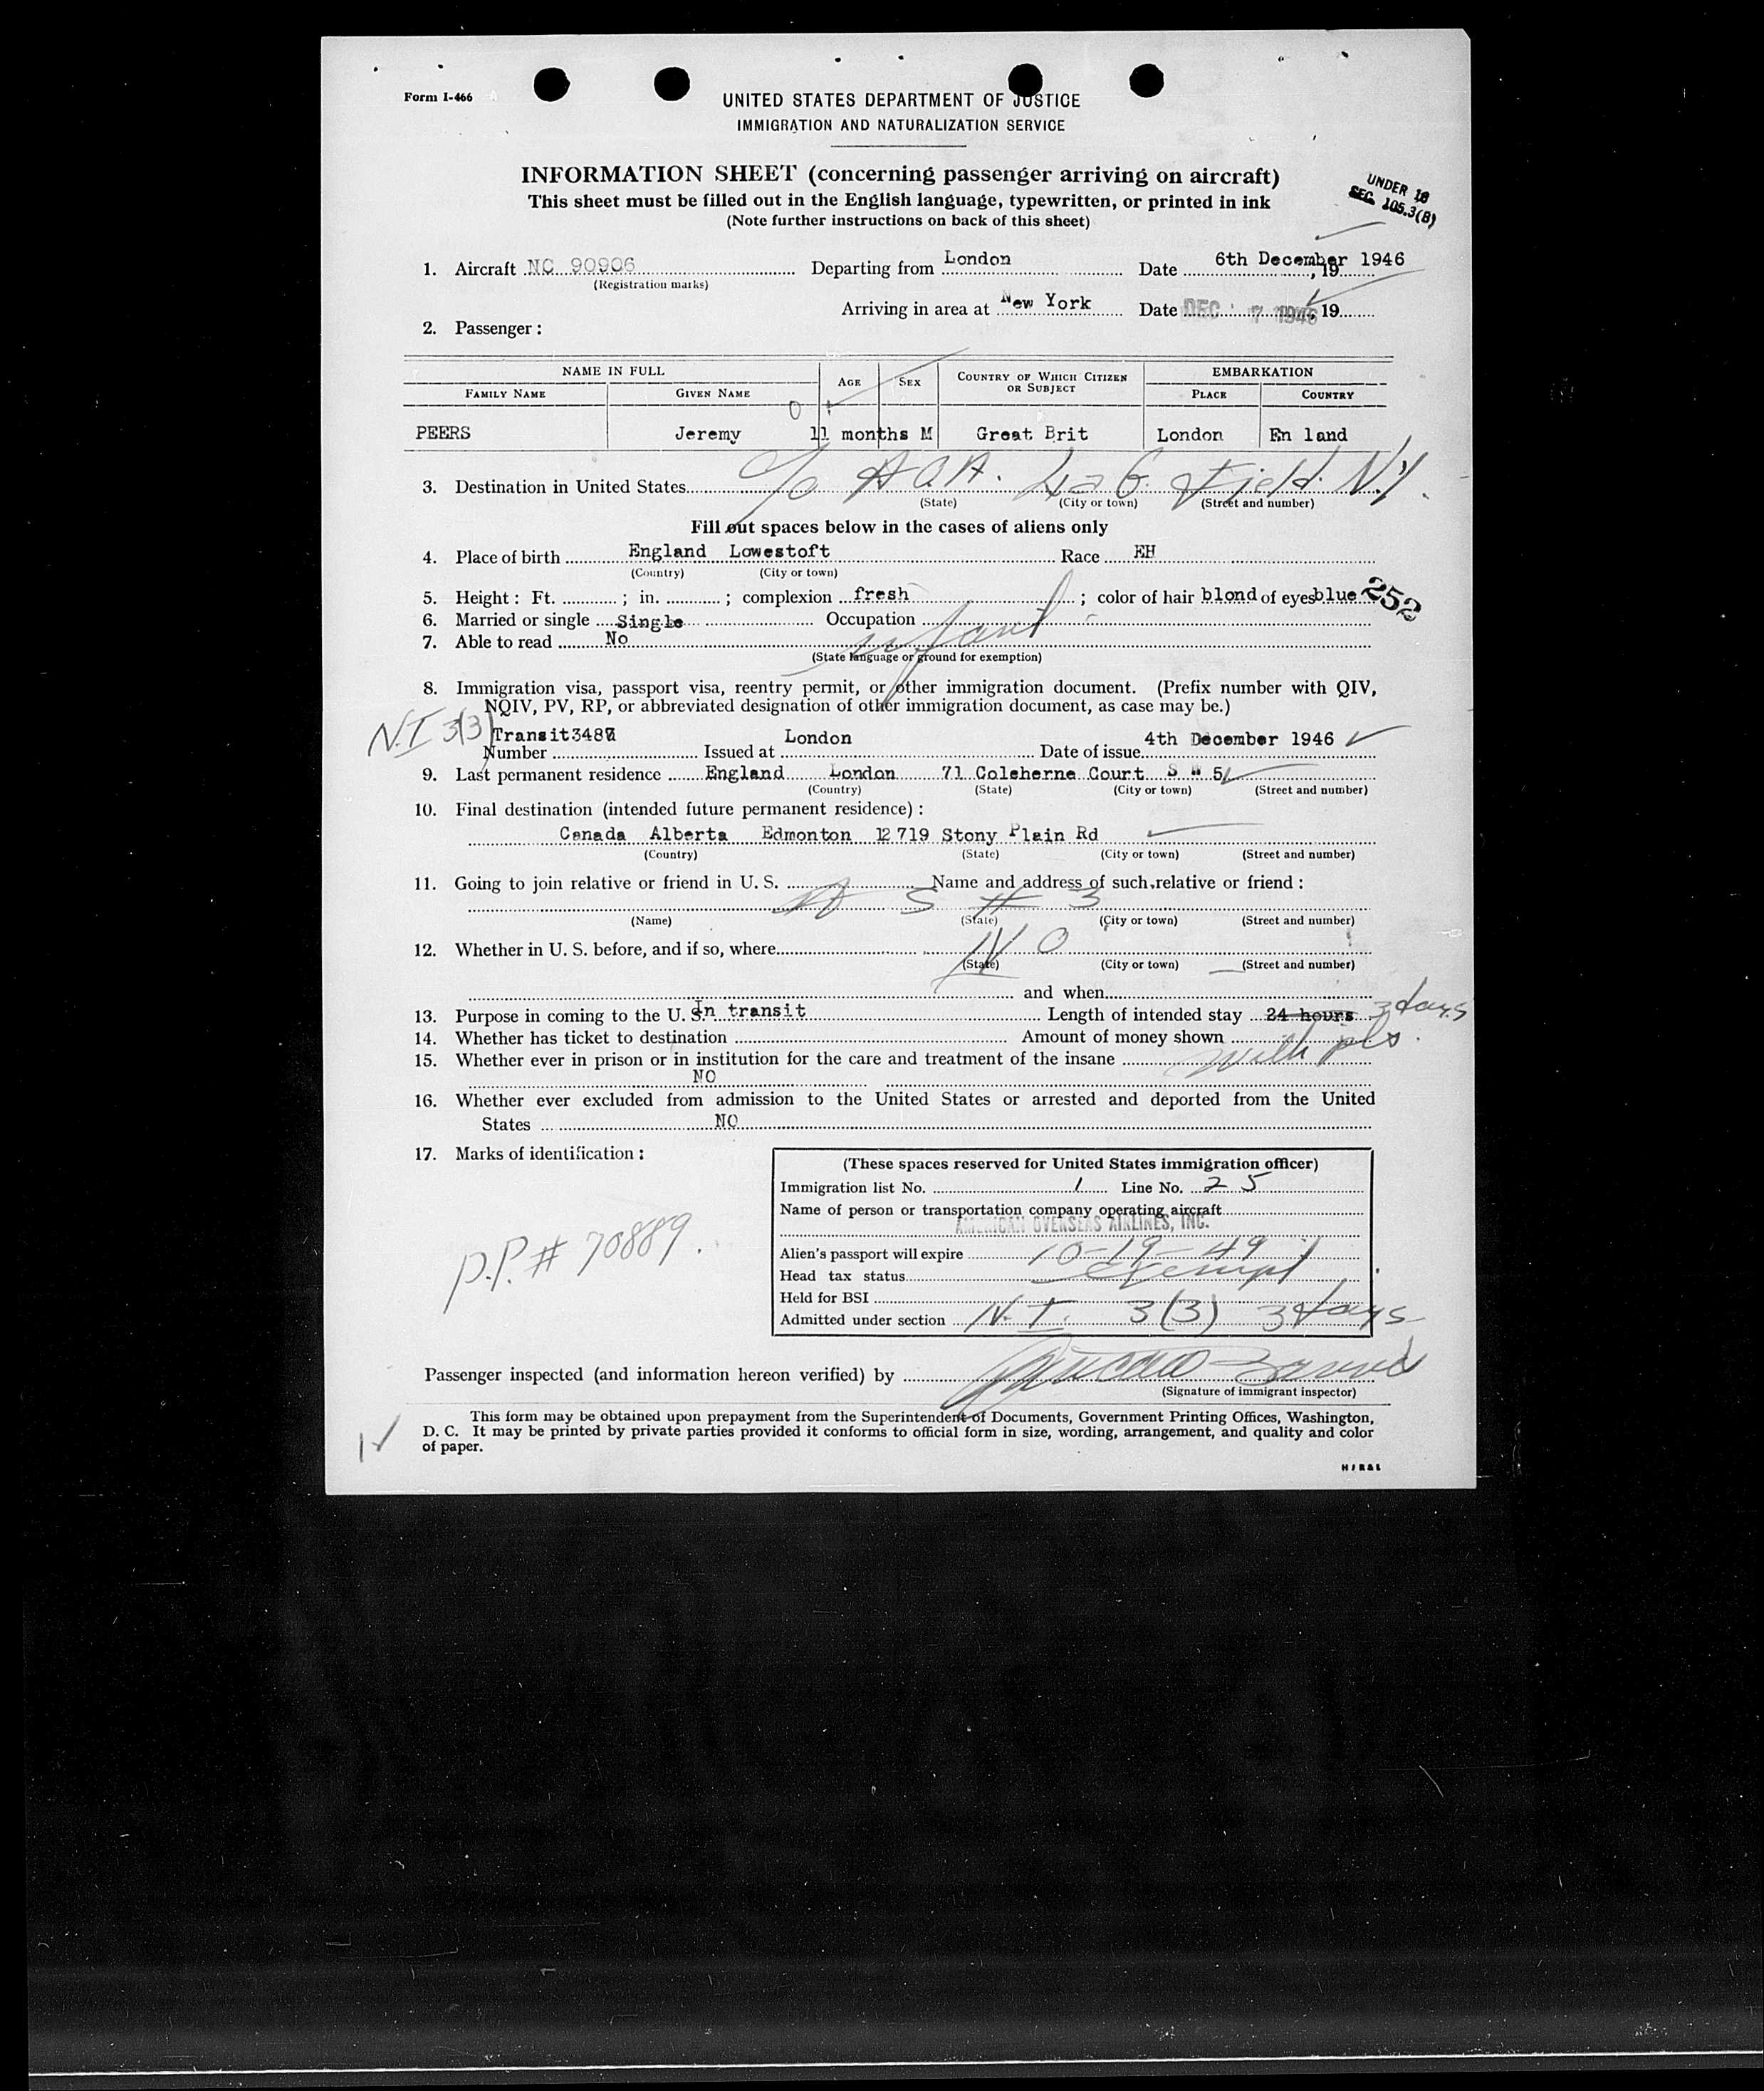 Form I-466
UNITED STATES DEPARTMENT OF JUSTICE
IMMIGRATION AND NATURALIZATION SERVICE
INFORMATION SHEET (concerning passenger arriving on aircraft)
This sheet must be filled out in the English language, typewritten, or printed in ink
(Note further instructions on back of this sheet)
UNDER 16
SEC. 105.3(B)
1. Aircraft NC 90906 Departing from London Date 6th December 1946, 19
(Registration marks)
Arriving in area at New York Date DEC 7 1946, 19
2. Passenger:
NAME IN FULL AGE SEX COUNTRY OF WHICH CITIZEN OR SUBJECT EMBARKATION
FAMILY NAME GIVEN NAME PLACE COUNTRY
PEERS Jeremy 11 months M Great Brit London En land
3. Destination in United States c/o A O A. LaG. Field. N.Y.
(State) (City or town) (Street and number)
Fill out spaces below in the cases of aliens only
4. Place of birth England Lowestoft Race EH
(Country) (City or town)
5. Height: Ft. ; in. ; complexion fresh ; color of hair blond of eyes blue 252
6. Married or single Single Occupation
7. Able to read No infant
(State language or ground for exemption)
8. Immigration visa, passport visa, reentry permit, or other immigration document. (Prefix number with QIV,
NQIV, PV, RP, or abbreviated designation of other immigration document, as case may be.)
N.I 3(3) Transit London 4th December 1946
Number Issued at Date of issue
9. Last permanent residence England London 71 Coleherne Court S W 5
(Country) (State) (City or town) (Street and number)
10. Final destination (intended future permanent residence):
Canada Alberta Edmonton 12719 Stony Plain Rd
(Country) (State) (City or town) (Street and number)
11. Going to join relative or friend in U. S. Name and address of such relative or friend:
AS # 3
(Name) (State) (City or town) (Street and number)
12. Whether in U. S. before, and if so, where NO
(State) (City or town) (Street and number)
and when
13. Purpose in coming to the U. S. In transit Length of intended stay 24 hours 3 days
14. Whether has ticket to destination Amount of money shown
15. Whether ever in prison or in institution for the care and treatment of the insane with pts.
NO
16. Whether ever excluded from admission to the United States or arrested and deported from the United
States NO
17. Marks of identification:
P.P. # 70889.
(These spaces reserved for United States immigration officer)
Immigration list No. 1 Line No. 25
Name of person or transportation company operating aircraft
AMERICAN OVERSEAS AIRLINES, INC.
Alien's passport will expire 10-19-49
Head tax status exempt
Held for BSI
Admitted under section N.I. 3(3) 3 days
Passenger inspected (and information hereon verified) by
(Signature of immigrant inspector)
This form may be obtained upon prepayment from the Superintendent of Documents, Government Printing Offices, Washington,
D. C. It may be printed by private parties provided it conforms to official form in size, wording, arrangement, and quality and color
of paper.